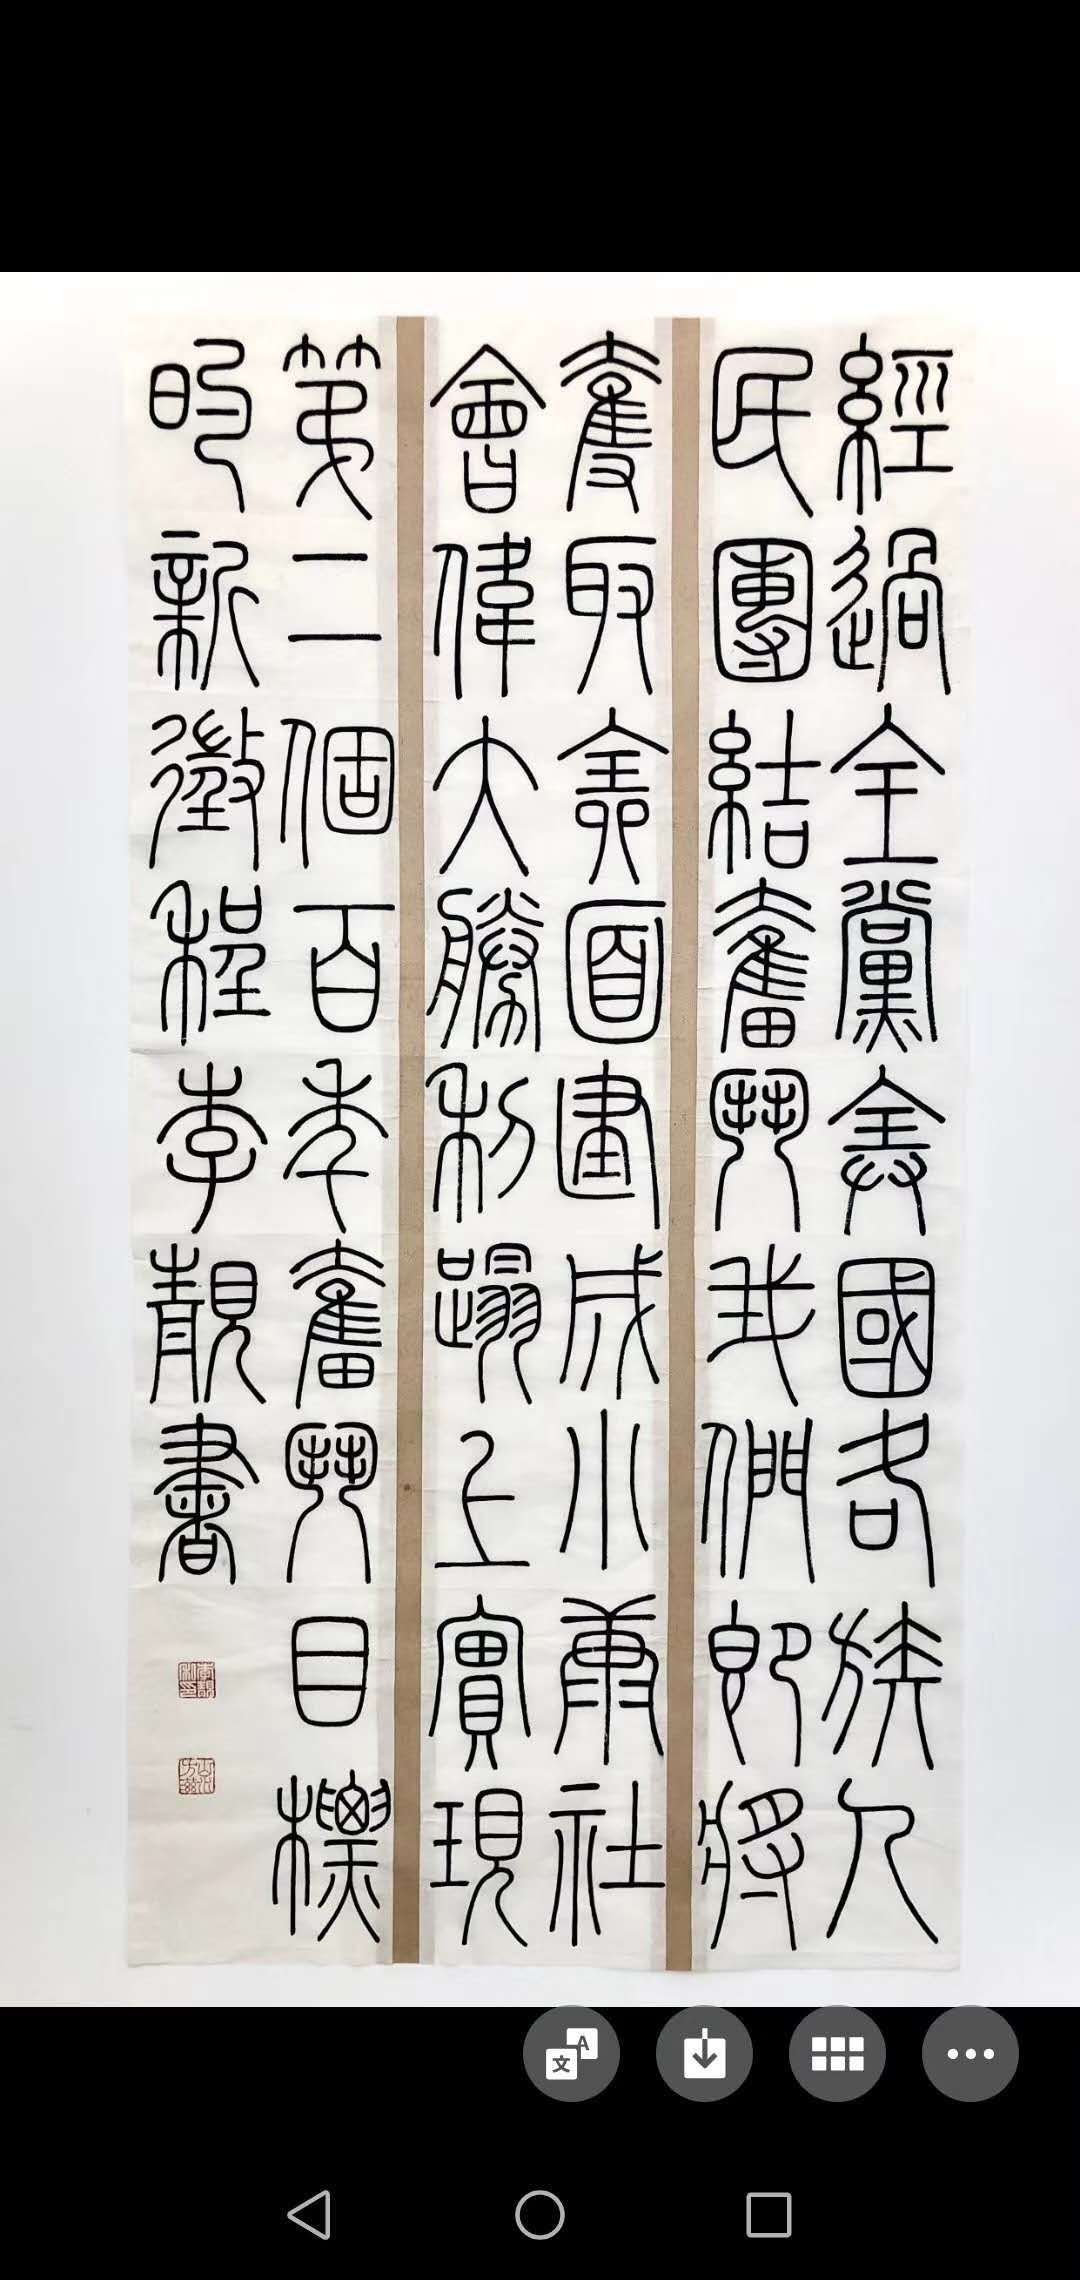 經過全黨全國各族人
民團結奮鬥我們即將
奪取全面建成小康社
會偉大勝利蹋上實現
第二個百年奮鬥目標
的新徵程李靚書